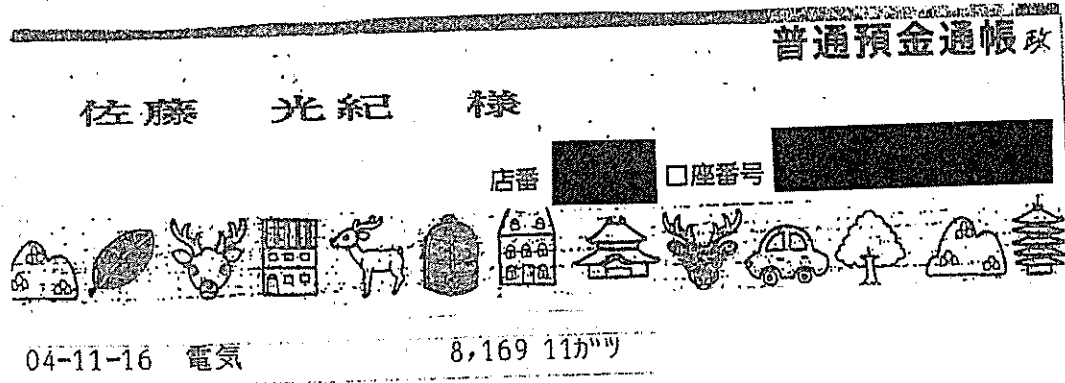 普通預金通帳 政
佐藤 光紀 様
店番 口座番号
04-11-16 電気 8,169 11ガツ